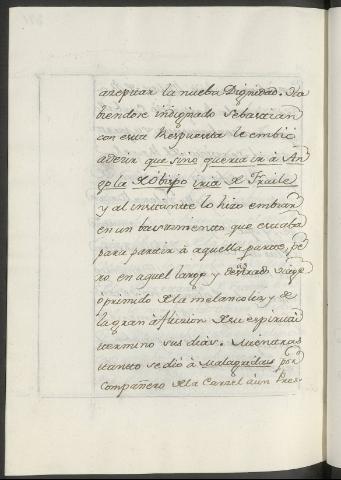 acepttar la nueba Dignidad. Ha
biendose indignado Sebastian
con esta Respuesta le embió
a decir que sino queria ir à An
gola de Obispo iria de Fraile
y al instante lo hizo embarcar
en un bastimento que estaba
para partir à aquella parte, pe
ro en aquel largo y viage
oprimido de la melancolia, y de
la gran aflicion de su espiritu
termino sus dias. Mientras
tanto se dió à Malagrida por
Compañero de la Carzel a un Pres-